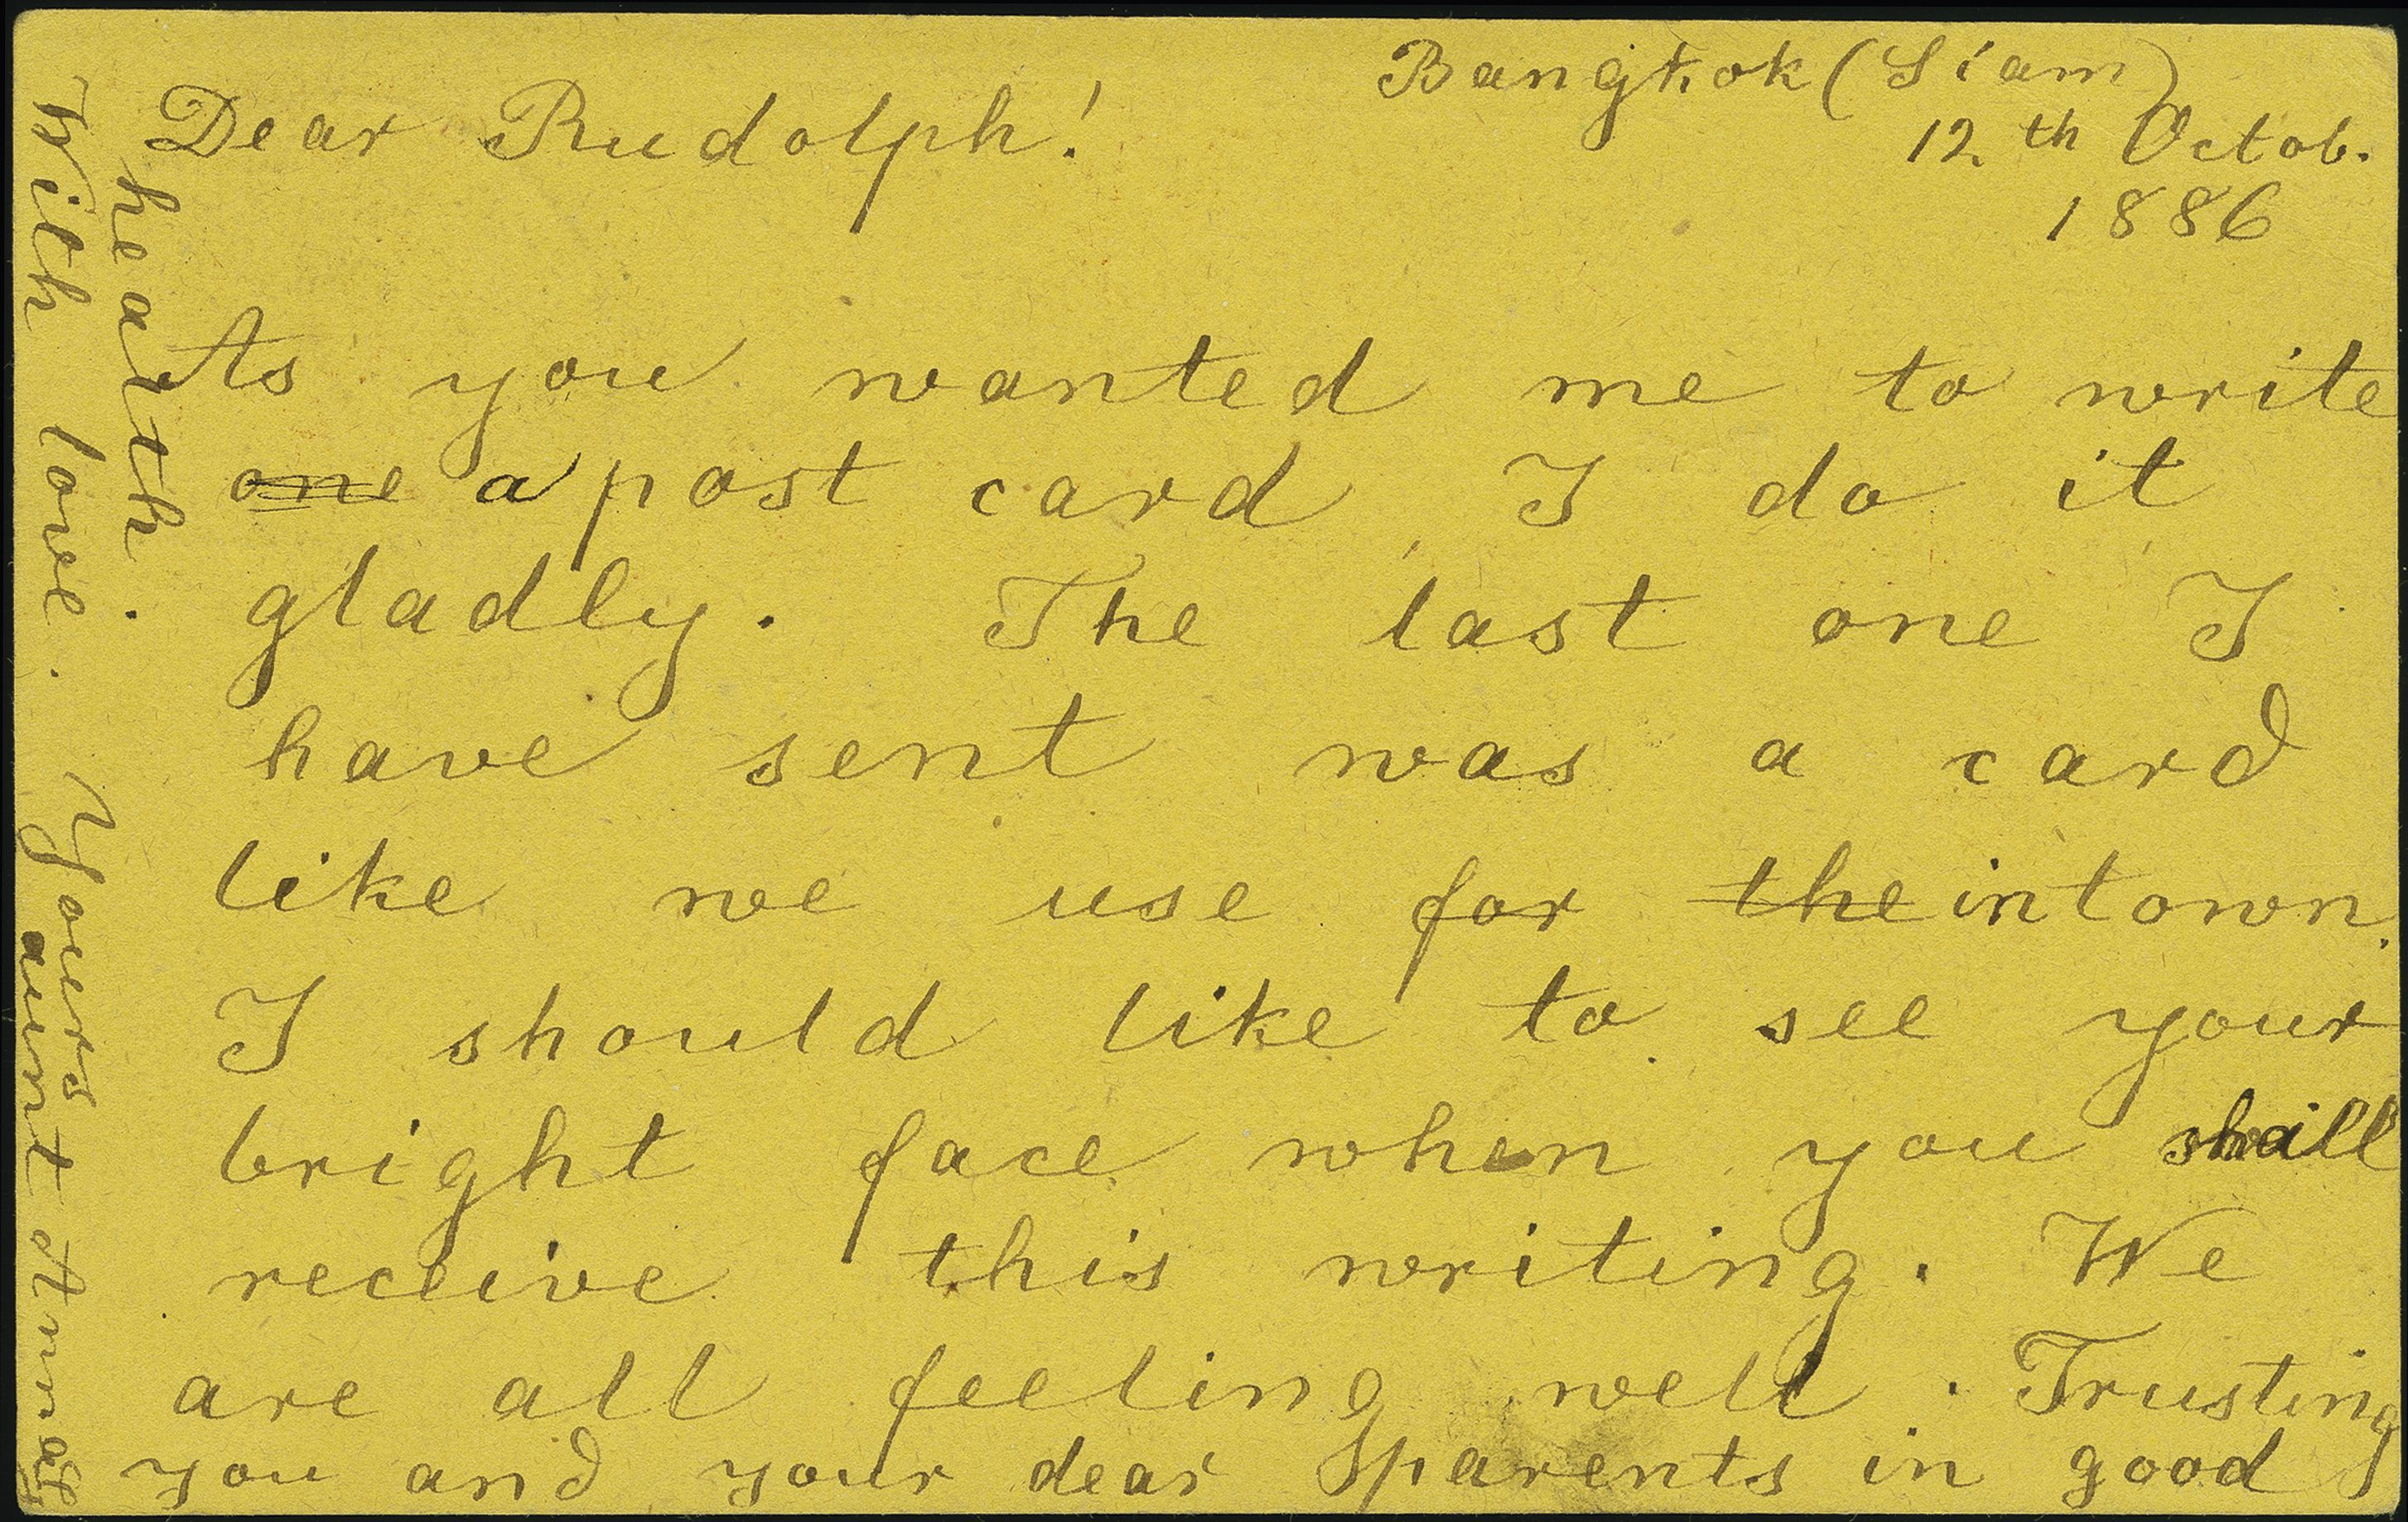 Bangkok (Siam)
12th Octob.
1886
Dear Rudolph!
As you wanted me to write
one a post card I do it
gladly. The last one I
have sent was a card
like we use for the in town.
I should like to see your
bright face when you shall
receive this writing. We
are all feeling well. Trusting
you and your dear parents in good
hearth.
With love. Yours
aunt Anna